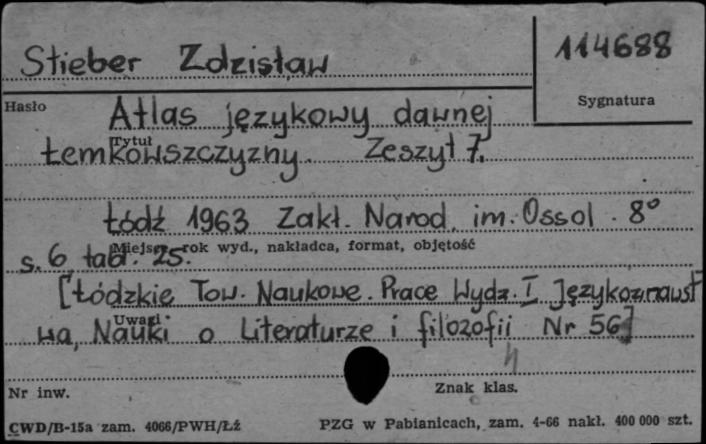 Stieber Zdzisław
114688
Hasło
Sygnatura
Atlas językowy dawnej
Tytuł
Łemkowszczyzny. Zeszyt 7.
Łódź 1963 Zakł. Narod. im. Ossol. 8°
Miejsce, rok wyd., nakładca, format, objętość
s. 6, tabl. 25.
[Łódzkie Tow. Naukowe. Prace Wydz. I Językoznawst
Uwagi
wa, Nauki o Literaturze i filozofii Nr 56]
Nr inw.
Znak klas.
CWD/B-15a zam. 4066/PWH/Łź
PZG w Pabianicach, zam. 4-66 nakł. 400 000 szt.